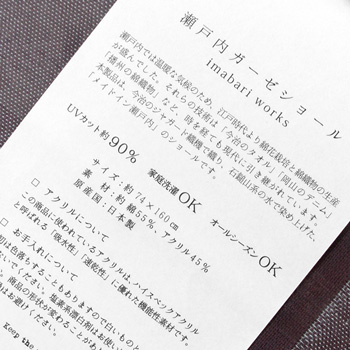 瀬戸内ガーゼショール
imabari works
瀬戸内では温暖な気候のため、江戸時代より綿花栽培と綿織物の生産
が盛んでした。それらの技術は「今治のタオル」「岡山のデニム」
「播州の綿織物」など、時を経ても現代に引き継がれています。
本製品は、今治のジャガード織機で織り、石鎚山系の水で染め上げた、
「メイドイン瀬戸内」のショールです。
UVカット約90% 家庭洗濯OK オールシーズンOK
サイズ：約74×160㎝
素　材：約 綿55%、アクリル45%
原産国：日本製
□ アクリルについて
この商品に使われているアクリルは、ハイスペックアクリル
と呼ばれる「吸水性」「速乾性」に優れた機能性素材です。
□ お手入れについて
色落ちすることもありますので白いものと
ください。塩素系漂白剤はお使い
い。商品の形状が変わることがあ
はお避けください。
Keep the